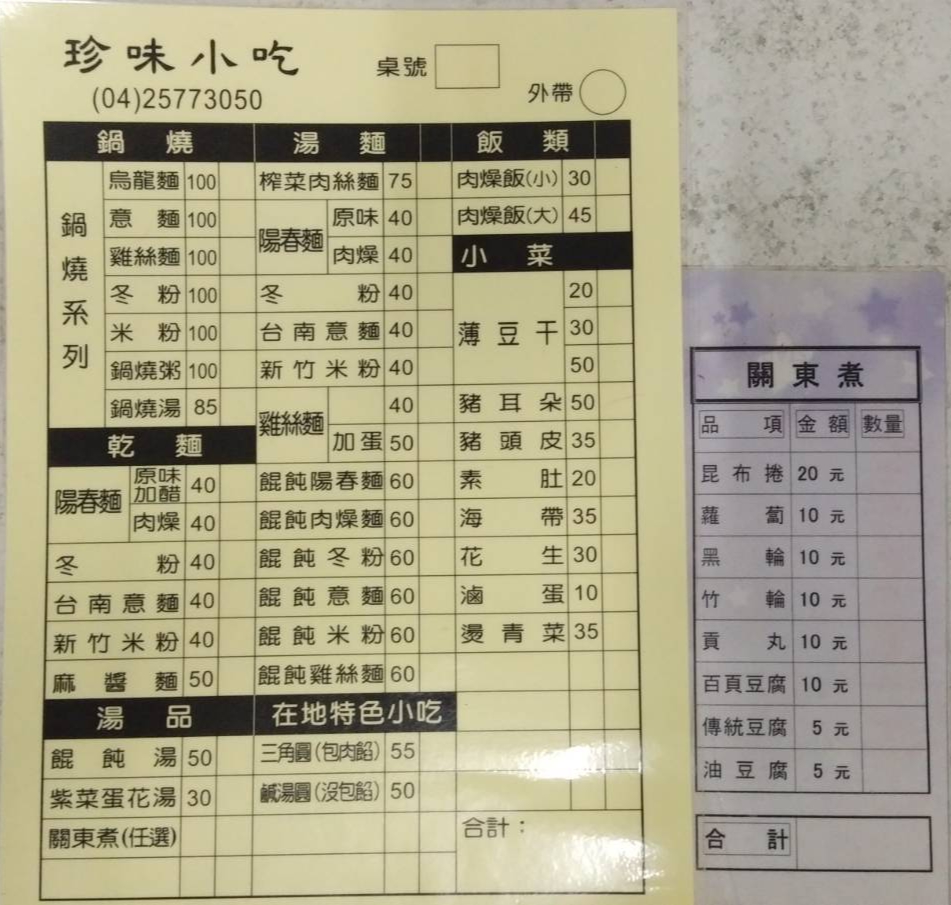 珍味小吃
(04)25773050
桌號
外帶
鍋燒
鍋燒系列
烏龍麵 100
意麵 100
雞絲麵 100
冬粉 100
米粉 100
鍋燒粥 100
鍋燒湯 85
乾麵
陽春麵
原味加醋 40
肉燥 40
冬粉 40
台南意麵 40
新竹米粉 40
麻醬麵 50
湯品
餛飩湯 50
紫菜蛋花湯 30
關東煮(任選)
湯麵
榨菜肉絲麵 75
陽春麵
原味 40
肉燥 40
冬粉 40
台南意麵 40
新竹米粉 40
雞絲麵
40
加蛋 50
餛飩陽春麵 60
餛飩肉燥麵 60
餛飩冬粉 60
餛飩意麵 60
餛飩米粉 60
餛飩雞絲麵 60
在地特色小吃
三角圓(包肉餡) 55
鹹湯圓(沒包餡) 50
飯類
肉燥飯(小) 30
肉燥飯(大) 45
小菜
薄豆干
20
30
50
豬耳朵 50
豬頭皮 35
素肚 20
海帶 35
花生 30
滷蛋 10
燙青菜 35
合計：
關東煮
品項 金額 數量
昆布捲 20 元
蘿蔔 10 元
黑輪 10 元
竹輪 10 元
貢丸 10 元
百頁豆腐 10 元
傳統豆腐 5 元
油豆腐 5 元
合計